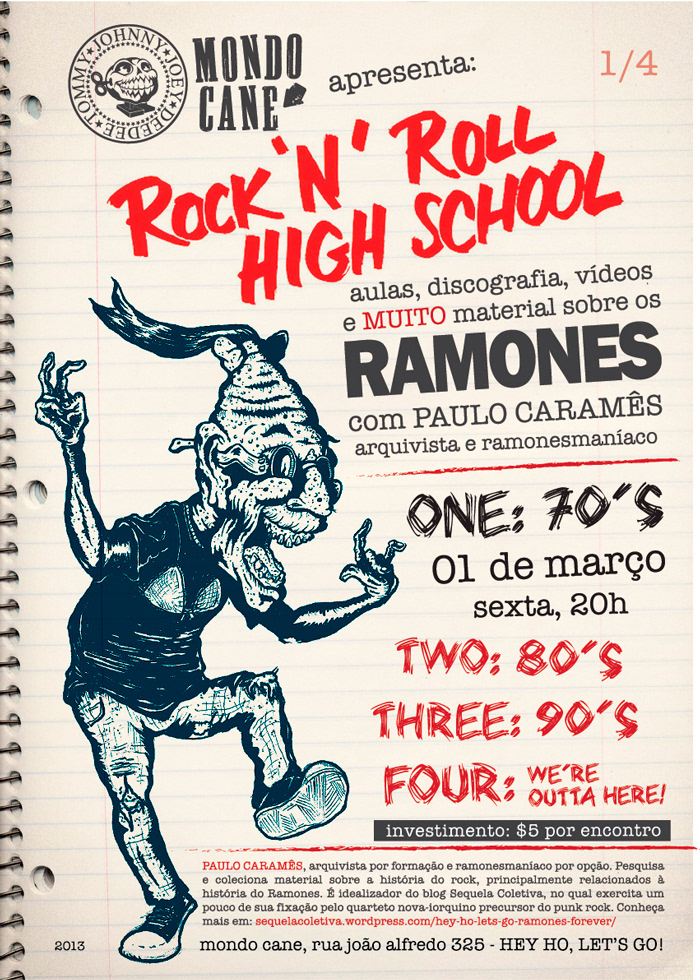 TOMMY★JOHNNY★JOEY★DEEDEE★
MONDO
CANE
apresenta:
1/4
ROCK'N' ROLL
HIGH SCHOOL
aulas, discografia, vídeos
e MUITO material sobre os
RAMONES
com PAULO CARAMÊS
arquivista e ramonesmaníaco
ONE: 70'S
01 de março
sexta, 20h
TWO: 80'S
THREE: 90'S
FOUR: WE'RE
OUTTA HERE!
investimento: $5 por encontro
PAULO CARAMÊS, arquivista por formação e ramonesmaníaco por opção. Pesquisa
e coleciona material sobre a história do rock, principalmente relacionados à
história do Ramones. É idealizador do blog Sequela Coletiva, no qual exercita um
pouco de sua fixação pelo quarteto nova-iorquino precursor do punk rock. Conheça
mais em: sequelacoletiva.wordpress.com/hey-ho-lets-go-ramones-forever/
2013
mondo cane, rua joão alfredo 325 - HEY HO, LET'S GO!